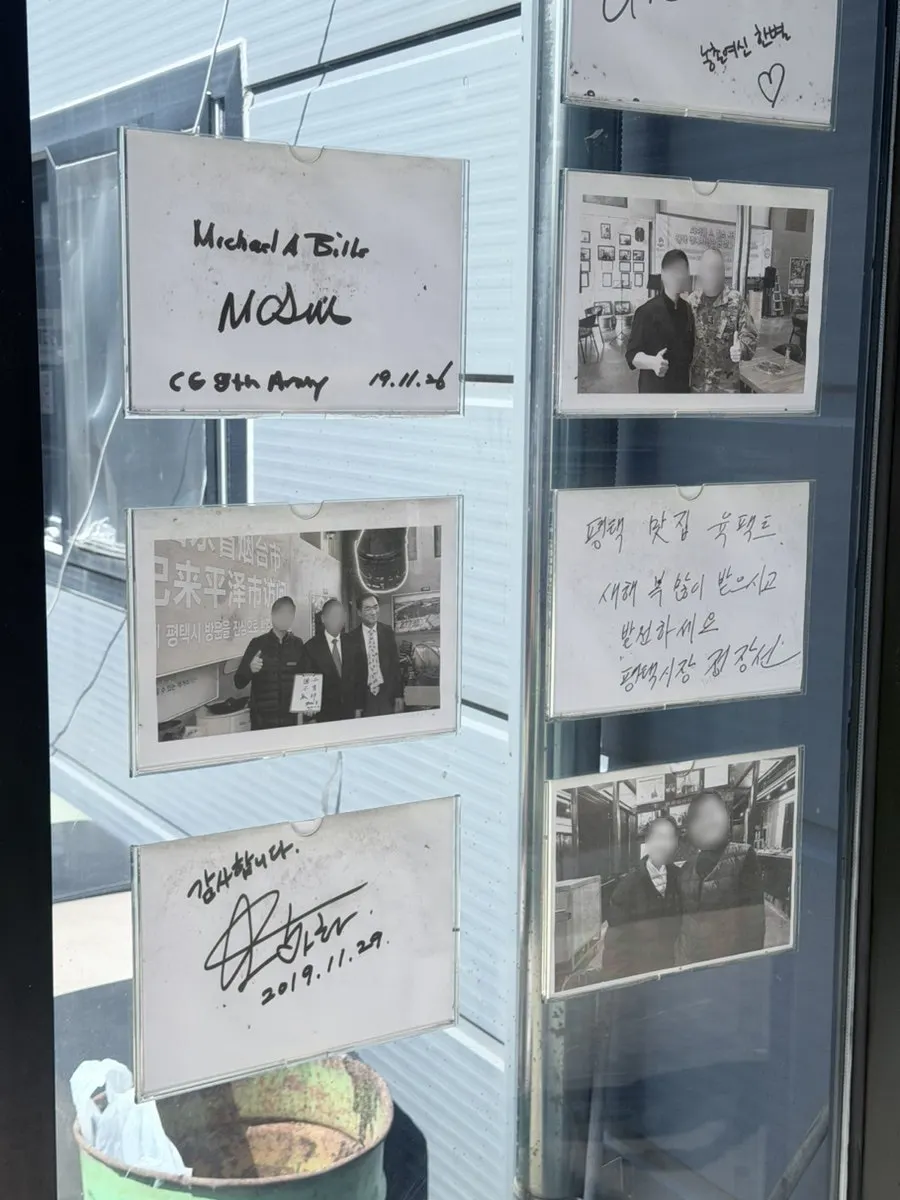 농촌여신 한별
Michael A Bills
CG 8th Army 19.11.26
烟台市
来平泽市访问
평택시 방문을 진심으로
평택 맛집 육팩트.
새해 복 많이 받으시고
발전하세요
평택시장 정장선
감사합니다.
2019.11.29.